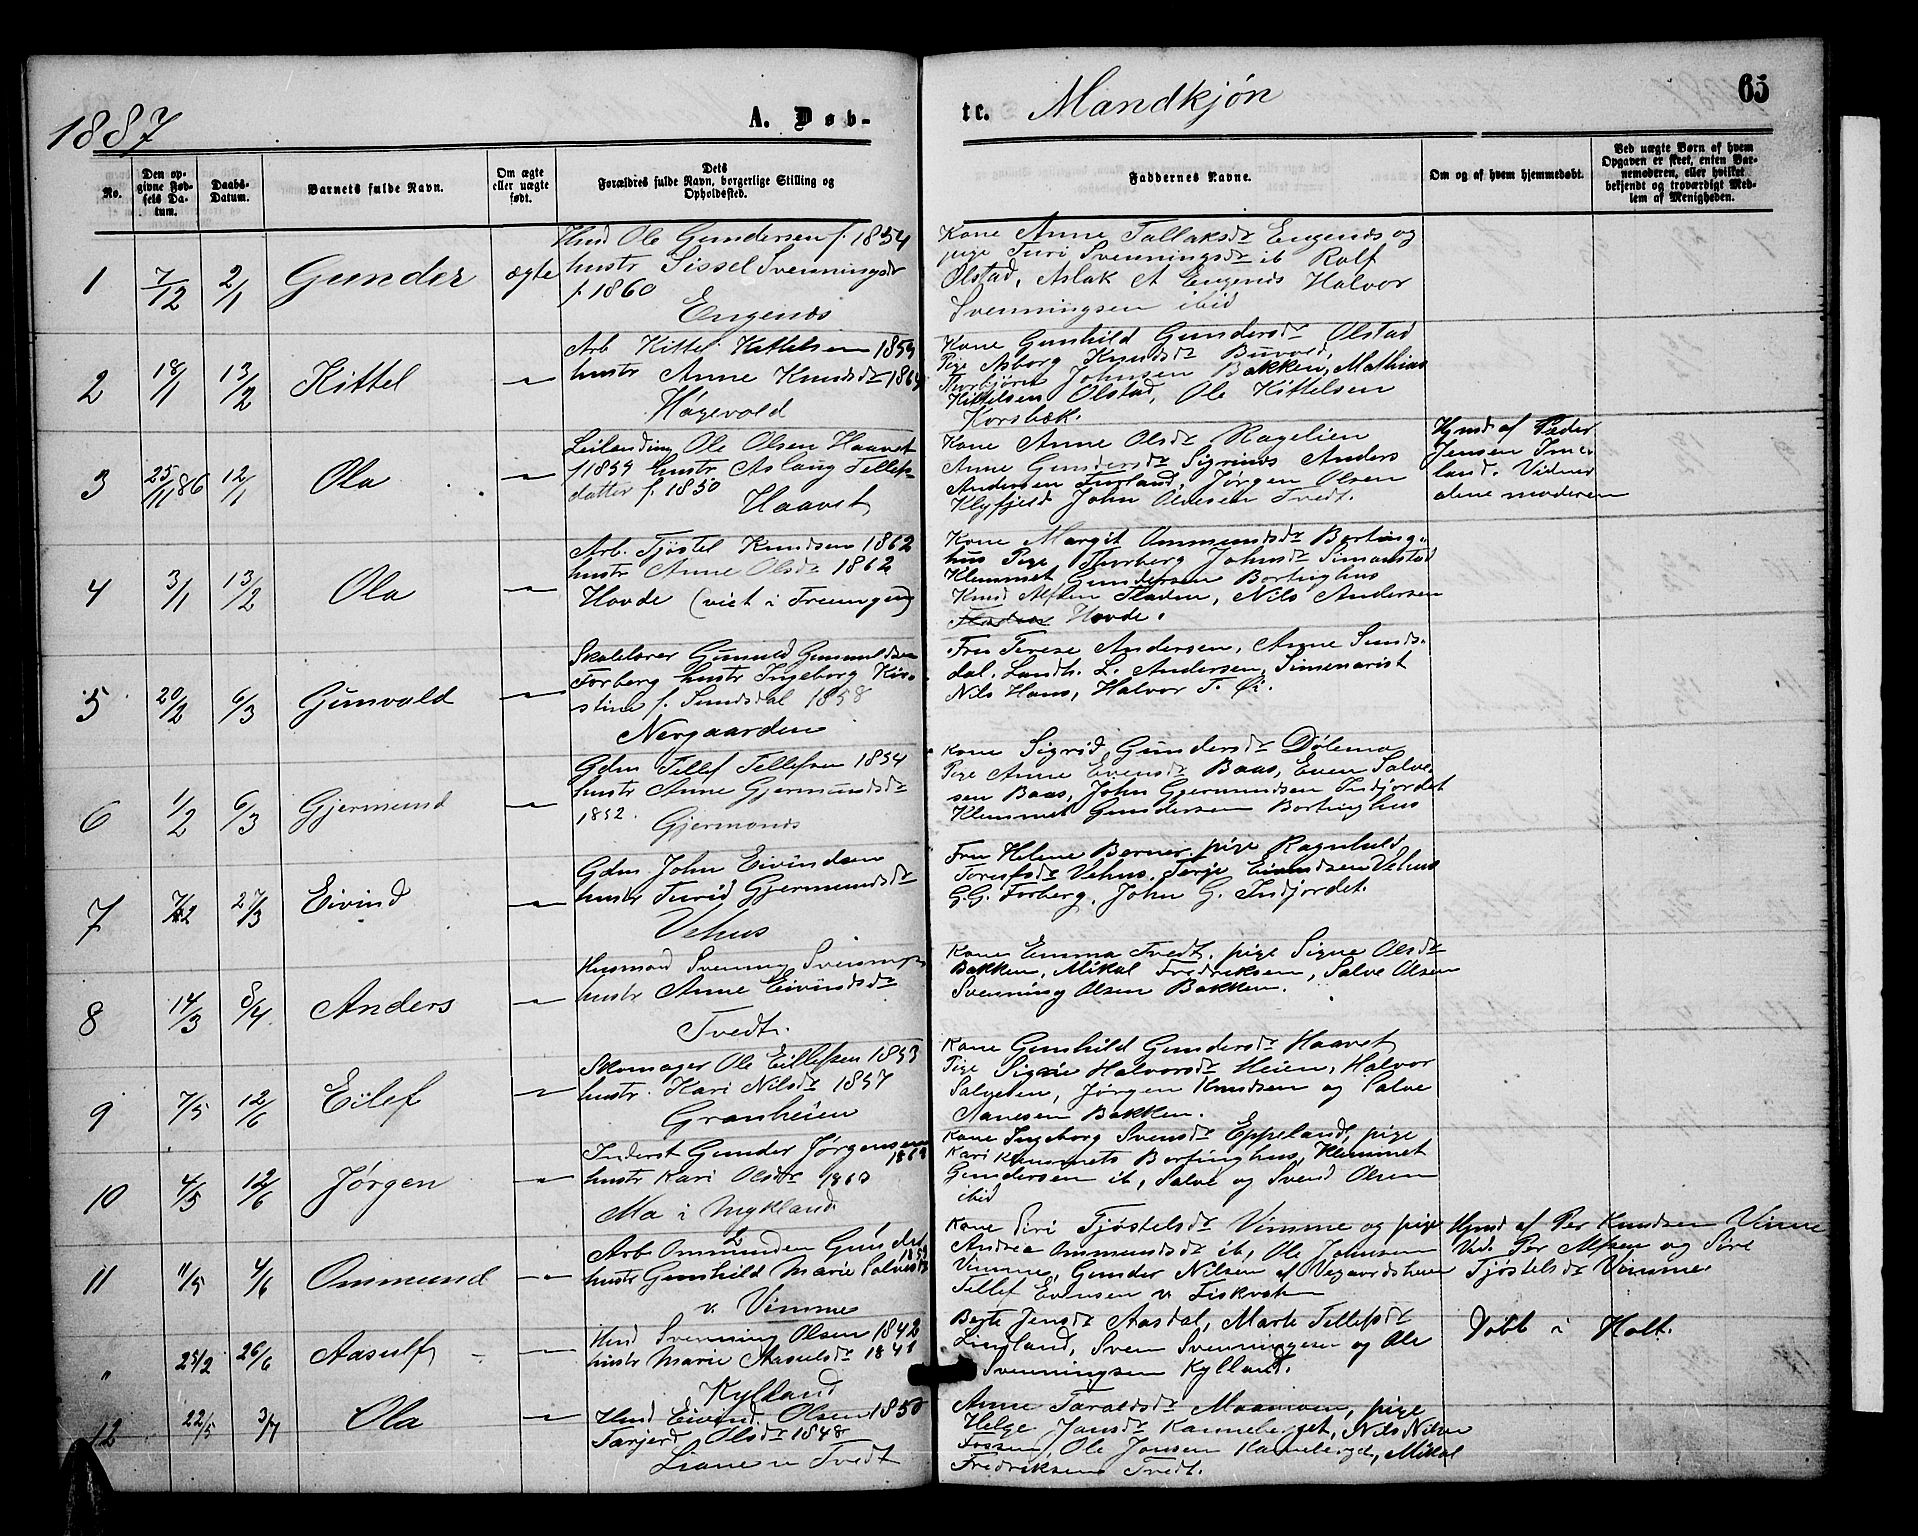 1887
A. Døb-
te. Mandkjøn
65
No.
Den op-
givne Fød-
sels Da-
tum.
Daabs-
Datum.
Barnets fulde Navn.
Om ægte
eller uægte
født.
Dets
Forældres fulde Navn, borgerlige Stilling og
Opholdssted.
Faddernes Navne.
Om og af hvem hjemmedøbt.
Ved uægte Børn af hvem
Opgaven er skeet, enten Bar-
nemoderen, eller hvilket
bekjendt og troværdigt Med-
lem af Menigheden.
1 7/12 2/1 Gunder ægte
Husd Ole Gundersen f. 1854
hustr Sissel Svenningsdr
f. 1860
Engenes
Kone Anne Tallaksdr Engenes og
pige Turi Svenningsdr ib Rolf
Olstad, Aslak A Engenes Halvor
Svenningsen ibid
2 18/1 13/2 Kittel —
Arb Kittel Kittelsen 1859
hustr Anne Knudsdr 1864
Høgevold
Kone Gunhild Gundersdr Olstad
Pige Asborg Knudsdr Buvold,
Thorbjørn Johnsen Bakken, Mathias
Kittelsen Olstad, Ole Kittelsen
Korsbæk.
3 25/11 86 12/1 Ola —
Leilænding Ole Olsen Haavet
f 1859 hustr Aslaug Tellefs-
datter f. 1850
Haavet
Kone Anne Olsdr Ragelien
Anne Gundersdr Sigrines Anders
Andersen Furland, Jørgen Olsen
Klyfjeld John Olvesen Tvedt.
Hjmd af Peder
Jensen Ime-
land. Vidner
alene moderen
4 3/1 13/2 Ola —
Arb. Tjøstel Knudsen 1862
hustr Anne Olsdr 1862
Hovde (viet i Treungen)
Kone Margit Ommundsdr Borting-
hus Pige Thorberg Johnsdr Simonstad
Klemmet Gundersen Bortinghus
Knud Alfsen Fladen, Nils Andersen
Hovde.
5 20/2 6/3 Gunvald —
Skolelærer Gunuld Gunuldsen
Forberg hustr Ingeborg Kir-
stine f. Sundsdal 1858
Nergaarden
Fru Terese Andersen, Anne Sunds-
dal, Landh. L. Andersen, Simenarist
Nils Hans, Halvor T. Øi.
6 1/2 6/3 Gjermund —
Gdm Tellef Tellefsen 1854
hustr Anne Gjermundsdr
1852. Gjermones
Kone Sigrid Gundersdr Dølemo
Pige Anne Evensdr Baas, Even Salve-
sen Baas, John Gjermundsen Indjordet
Klemmet Gundersen Bortinghus
7 7/12 27/3 Eivind —
Gdm John Eivindsen
hustr Turid Gjermundsdr
Vehus
Fru Helene Berner, pige Ragnhild
Torufsdr Vehus, Terje Eivindsen Vehus
G. G. Forberg, John G. Indjordet.
8 14/3 8/4 Anders —
Husmand Svenning
hustr Anne Eivindsdr
Tvedt.
Kone Emma Tvedt, pige Signe Olsdr
Bakken, Mikal Fredriksen, Salve Olsen
Svenning Olsen Bakken.
9 7/5 12/6 Eilef —
Skomager Ole Eillefsen 1853
hustr. Kari Nilsdr 1857
Granheien
Kone Gunhild Gundersdr Haavet
Pige Signe Halvorsdr Heien, Halvor
Salvesen, Jørgen Knudsen og Salve
Aanesen Bakken.
10 4/5 12/6 Jørgen —
Inderst Gunder Jørgensen
hustr Kari Olsdr 1860
Mo i Mykland
Kone Ingeborg Svensdr Eppeland, pige
Kari Klemmets Bortinghus, Klemmet
Gundersen ib, Salve og Svend Olsen
ibid
11 11/5 4/6 Ommund —
Arb Ommunden
hustr Gunhild Marie Salvesdr
v. Vimme
Kone Siri Tjøstelsdr Vimme og pige
Andrea Ommundsdr ib, Ole Johnsen
Vimme, Gunder Nilsen af Vegaardsheien
Tellef Evensen v. Fiskvatn
Hjmd af Per Knudsen Vimme
Vid. Per Alfsen og Sire
Tjøstelsdr Vimme.
" 25/2 26/6 Aasulf —
Husd Svenning Olsen 1842
hustr Marie Aasulsdr 1841
Kylland
Berte Jensdr Aasdal, Marte Tellefsdr
Lingland, Sven Svenningsen og Ole
Svenningsen Kylland.
Døbt i Holt.
12 22/5 3/7 Ola —
Husd Eivind Olsen 1850
Tarjerd Olsdr 1848
Liane u Tvedt
Anne Taraldsdr Maamoen, pige
Helge Jansdr Kanneberget, Nils Nilsen
Fossen, Ole Jensen Kanneberget, Mikal
Fredriksen Tvedt.